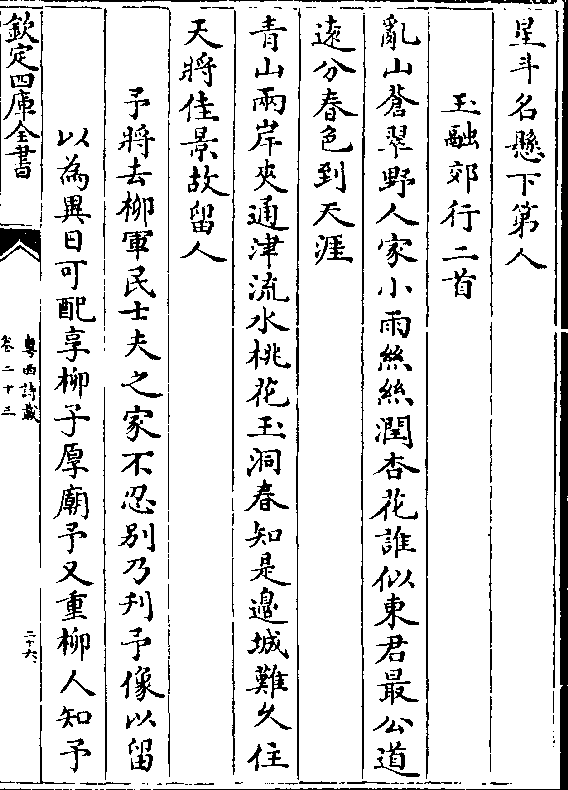 星斗名懸下第人
玉融郊行二首
亂山蒼翠野人家小雨絲絲潤杏花誰似東君最公道
遠分春色到天涯
青山兩岸夾通津流水桃花玉洞春知是邊城難久住
天將佳景故留人
予將去柳軍民士夫之家不忍别乃刋予像以留
以為異日可配享柳子厚廟予又重柳人知予
欽定四庫全書
粤西詩載
卷二十三
二十六